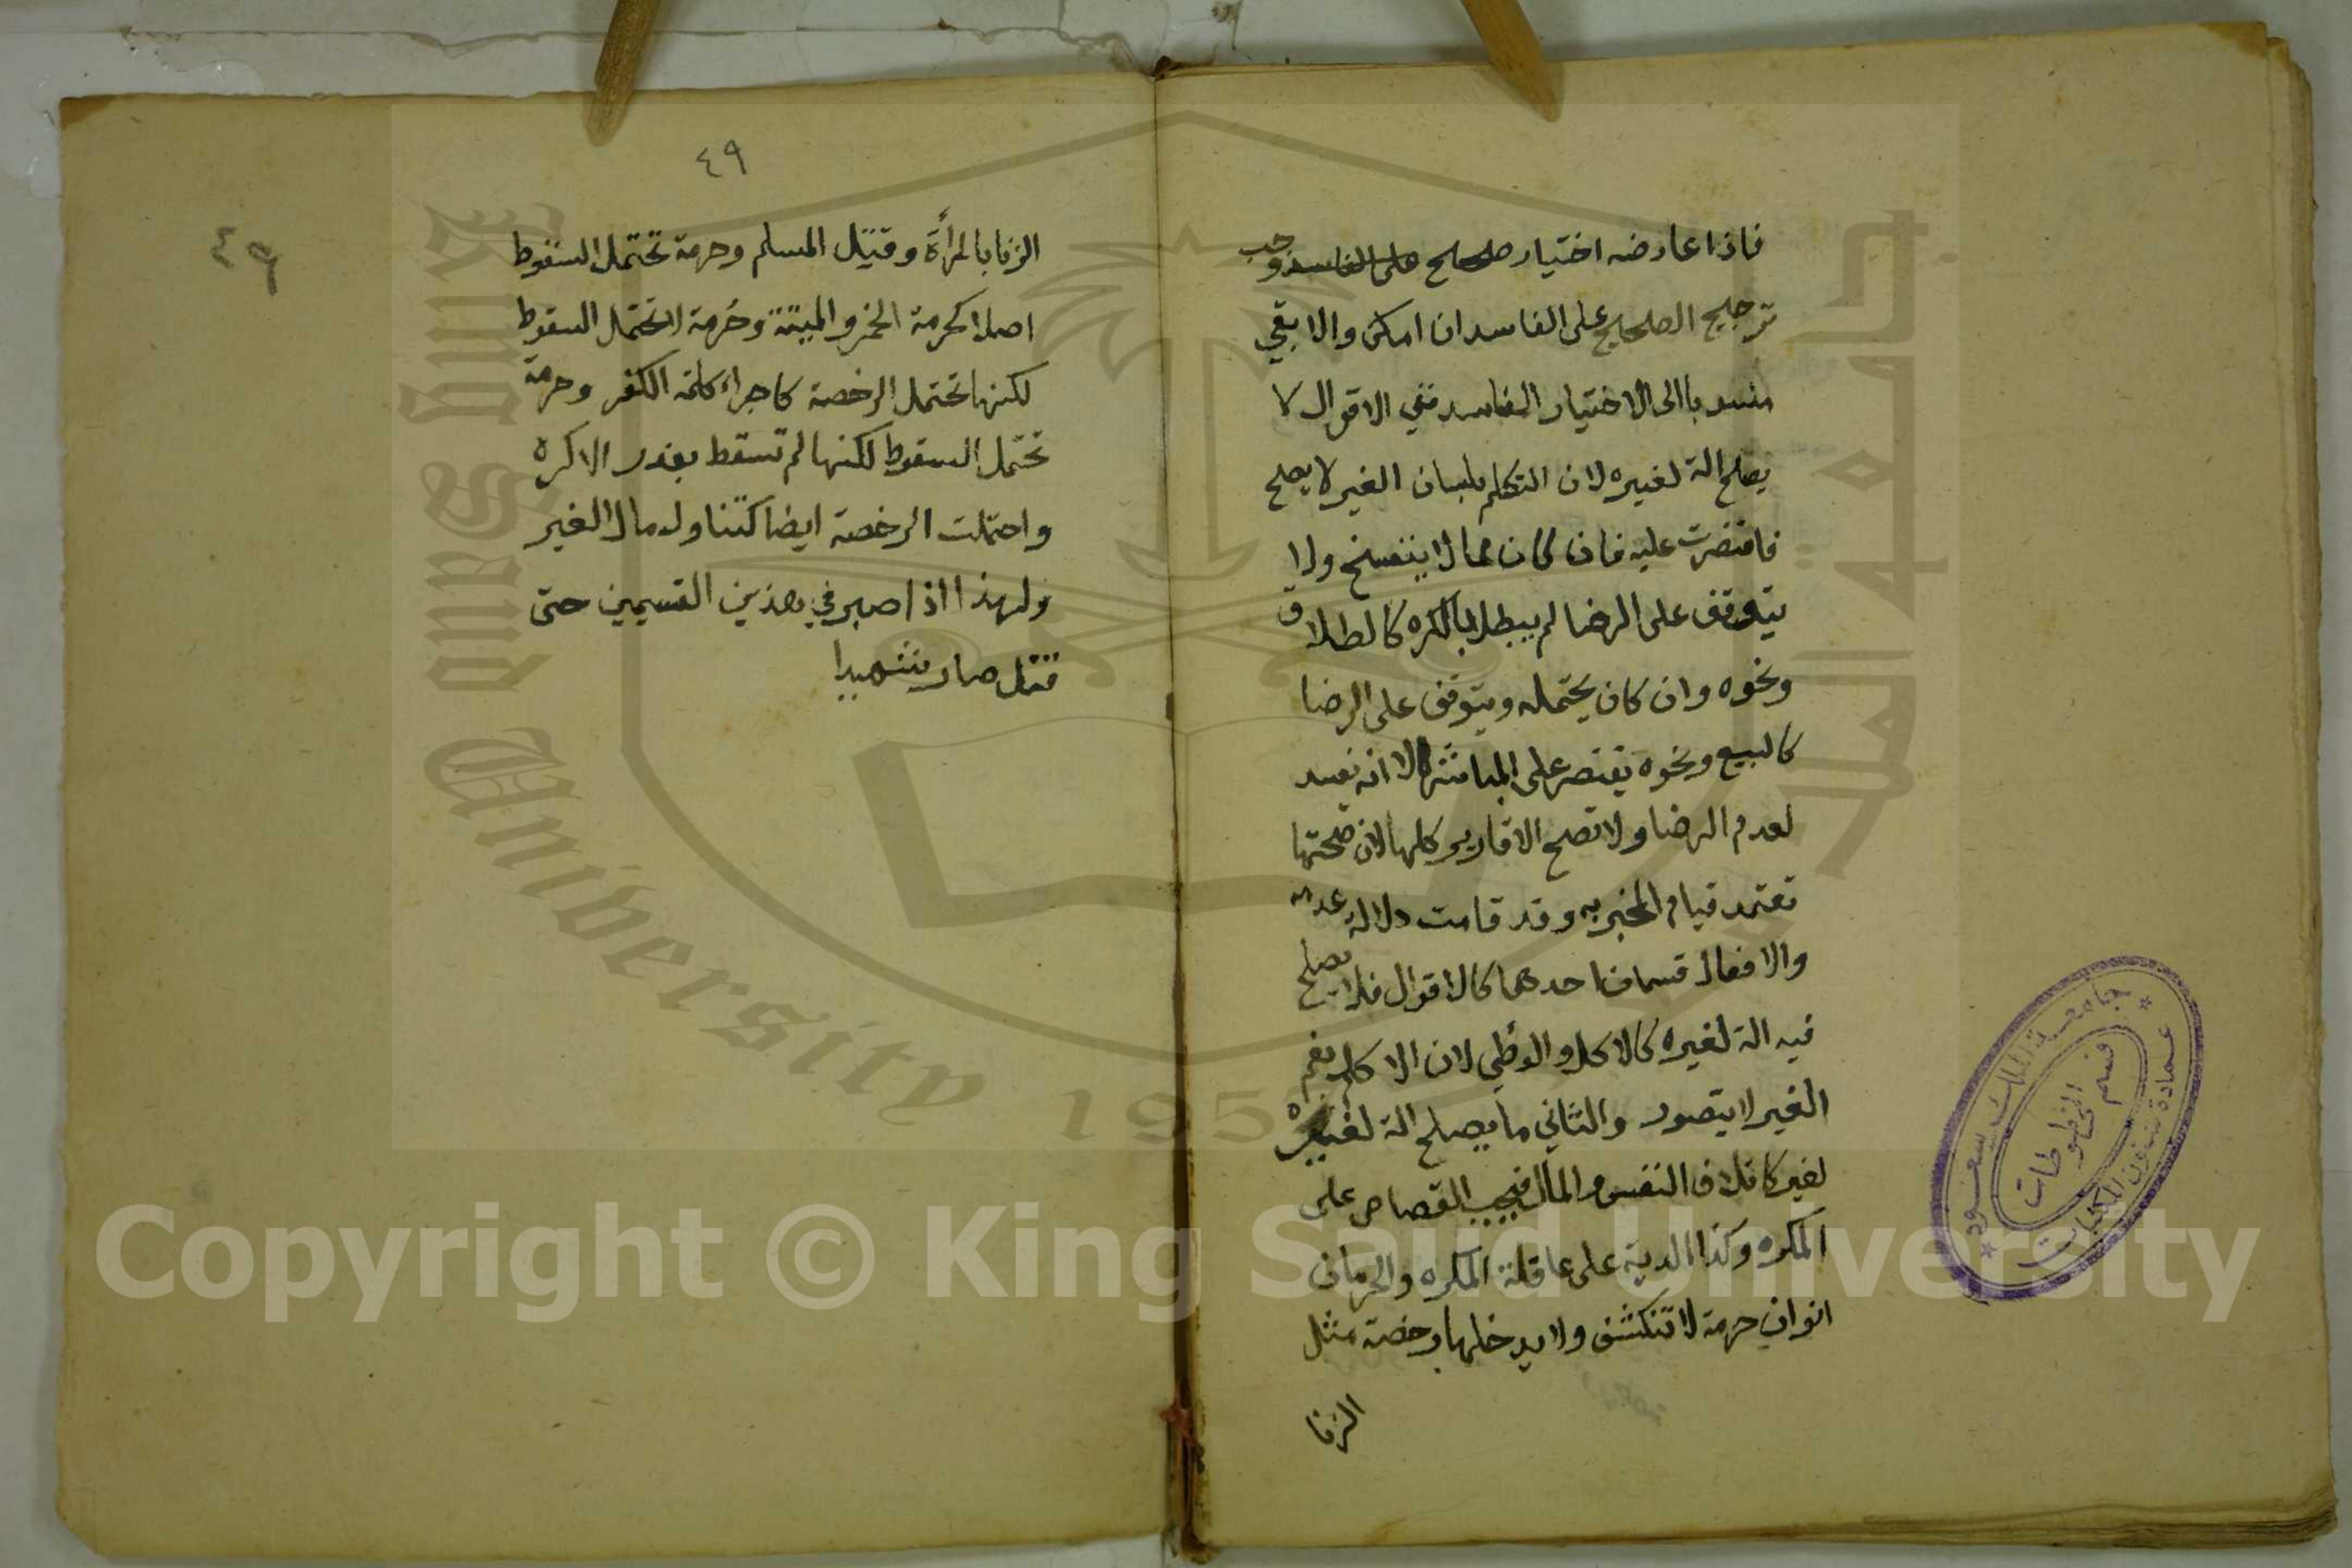 فاذا عارضه اختيار صحيح على الفاسد وجب
ترجيح الصحيح على الفاسد ان امكن والا بقي
منسوبا الى الاختيار الفاسد ففي الاقوال لا
يصلح الة لغيره لان التكلم بلسان الغير لا يصلح
فاقتصرت عليه فان كان مما لا ينفسخ ولا
يتوقف على الرضا لم يبطل بالكره كالطلاق
ونحوه وان كان يحتمله ويتوقف على الرضا
كالبيع ونحوه يقتصر على المباشر الا انه يفسد
لعدم الرضا ولا تصح الاقارير كلها لان صحتها
تعتمد قيام المخبر به وقد قامت دلالة عدمه
والافعال قسمان احدهما كالاقوال فلا يصلح
فيه الة لغيره كالاكل والوطي لان الاكل بفم
الغير لا يتصور والثاني ما يصلح الة لغيره
لغير كاتلاف النفس والمال فيجب القصاص على
المكره وكذا الدية على عاقلة المكره والحرمات
انواع حرمة لا تنكشف ولا يدخلها رخصة مثل
الزنا
٤٩
الزنا بالمرأة وقتل المسلم وحرمة تحتمل السقوط
اصلا كحرمة الخمر والميتة وحرمة لا تحتمل السقوط
لكنها تحتمل الرخصة كاجراء كلمة الكفر وحرمة
تحتمل السقوط لكنها لم تسقط بعذر الاكره
واحتملت الرخصة ايضا كتناول مال الغير
ولهذا اذا صبر في هذين القسمين حتى
قتل صار شهيدا
٤٩
جامعة الملك سعود
عمادة شئون المكتبات
قسم المخطوطات
King Saud University
1957
Copyright © King Saud University